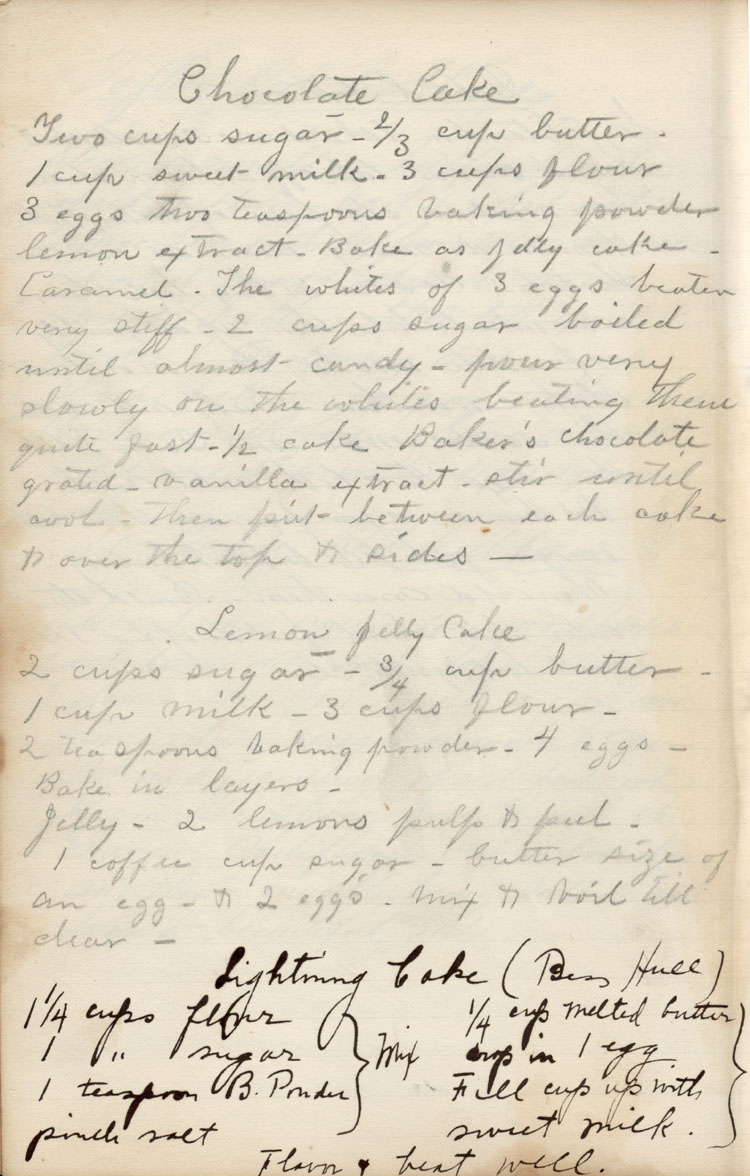 Chocolate Cake
Two cups sugar - 2/3 cup butter -
1 cup sweet milk - 3 cups flour
3 eggs two teaspoons baking powder
lemon extract - Bake as jelly cake -
Caramel - The whites of 3 eggs beaten
very stiff - 2 cups sugar boiled
until almost candy - pour very
slowly on the whites beating them
quite fast - 1/2 cake Baker's chocolate
grated - vanilla extract - stir until
cool - then put between each cake
& over the top & sides —
Lemon Jelly Cake
2 cups sugar - 3/4 cup butter -
1 cup milk - 3 cups flour -
2 teaspoons baking powder - 4 eggs -
Bake in layers -
Jelly - 2 lemons pulp & peel -
1 coffee cup sugar - butter size of
an egg - & 2 eggs - mix & boil till
clear -
Lightning Cake (Bess Hull)
1 1/4 cups flour
1 " sugar
1 teaspoon B. Powder
pinch salt
Mix
1/4 cup melted butter
in 1 egg
Fill cup up with
sweet milk.
Flavor & beat well.